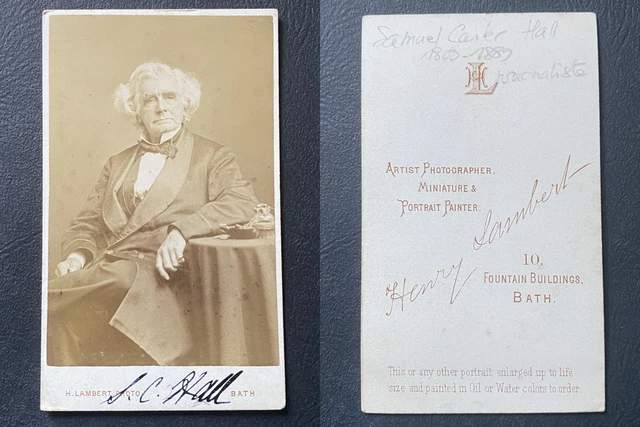 H. LAMBERT PHOTO BATH
S. C. Hall
Samuel Carter Hall
1800-1889
journaliste
ARTIST PHOTOGRAPHER,
MINIATURE &
PORTRAIT PAINTER.
Henry Lambert
10,
FOUNTAIN BUILDINGS,
BATH.
This or any other portrait enlarged up to life
size and painted in Oil or Water colors to order.